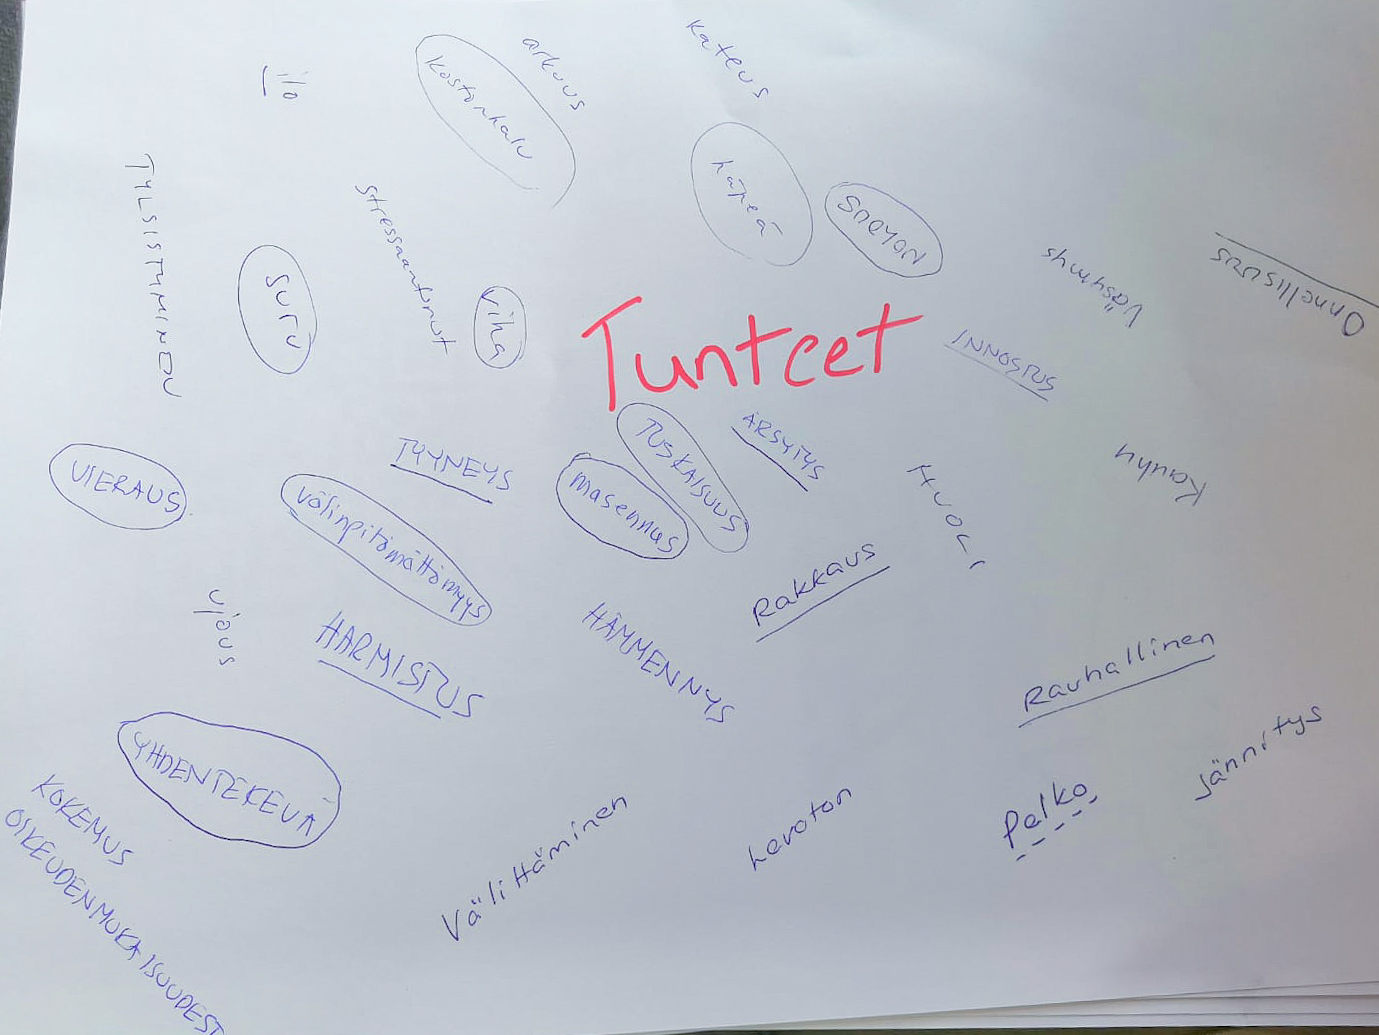 kateus
arkuus
kostonhalu
ilo
häpeä
TYLSISTYMINEN
stressaantunut
SURYON
Väshmys
Onnellisuus
suru
viha
Tunteet
INNOSTUS
TUSKAISUUS
ÄRSYTYS
TYYNEYS
VIERAUS
masennus
Kauhu
HUOLI
välinpitämättömyys
Rakkaus
ujous
HARMISTUS
HÄMMENNYS
Rauhallinen
YHDENTEKEVÄ
jännitys
Pelko
Levoton
Välittäminen
KOKEMUS
OIKEUDENMUKAISUUDEST